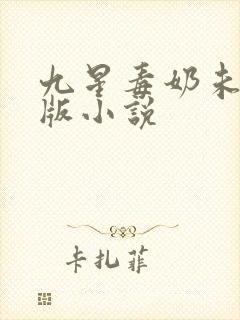 九星毒奶未
版小説
卡扎菲